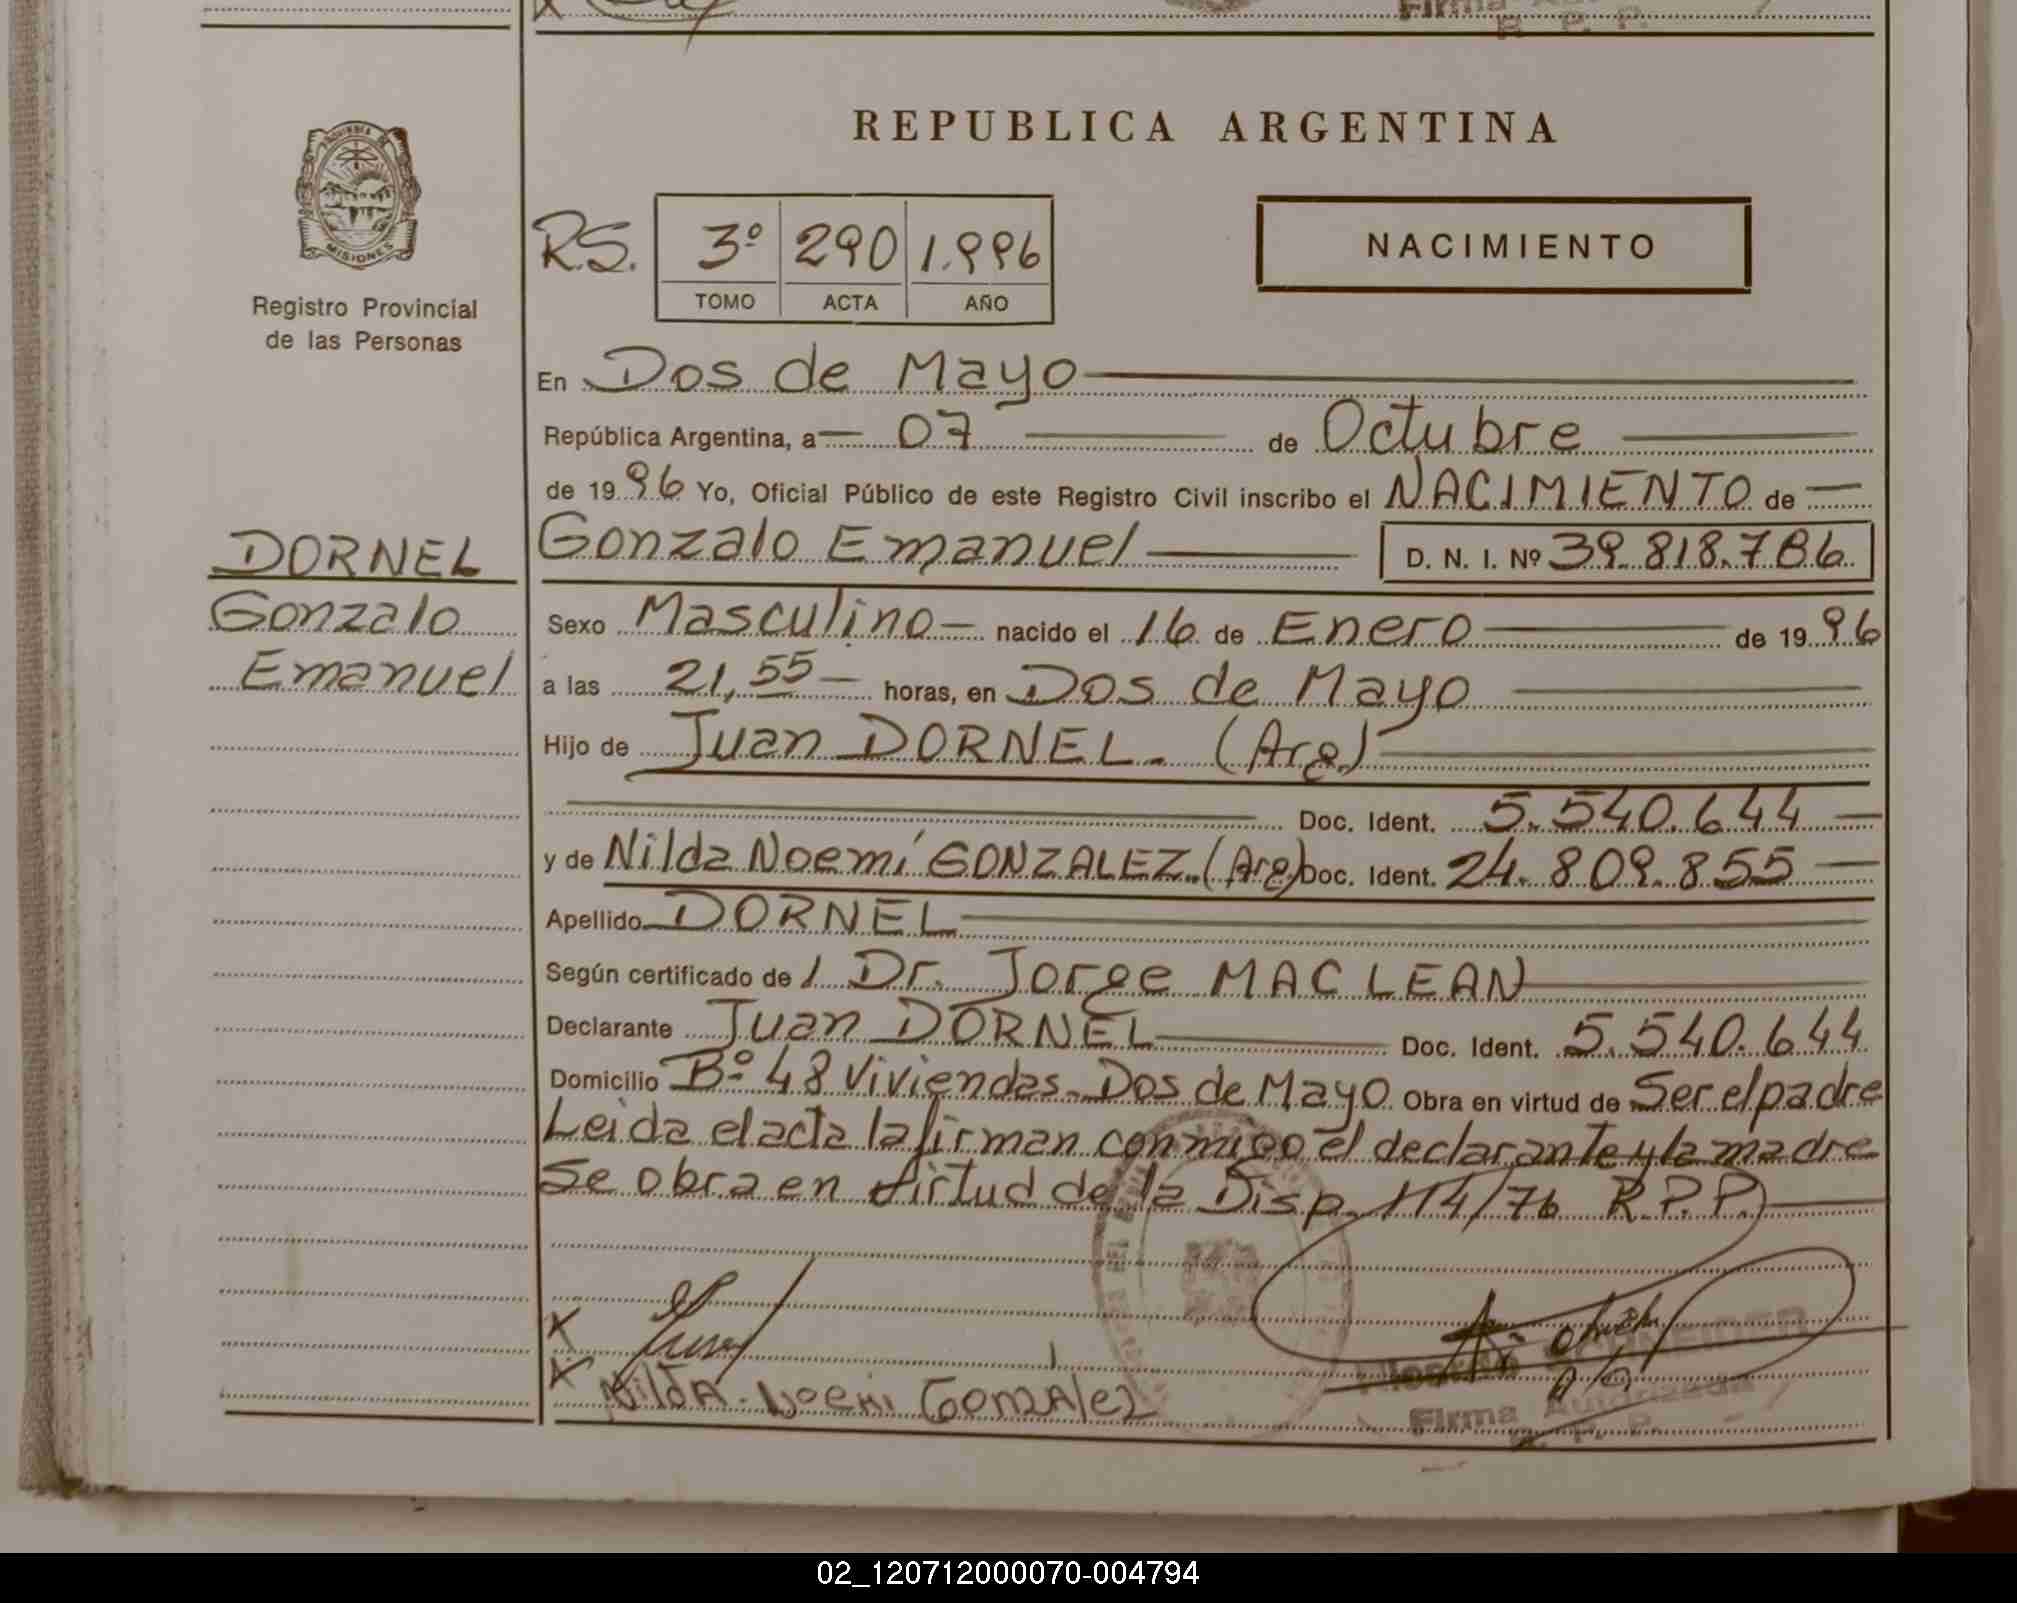 REPUBLICA ARGENTINA
PROVINCIA DE
MISIONES
Registro Provincial
de las Personas
RS. 3º 290 1.996
TOMO ACTA AÑO
NACIMIENTO
En Dos de Mayo
República Argentina, a 07 de Octubre
de 1996 Yo, Oficial Público de este Registro Civil inscribo el NACIMIENTO de
Gonzalo Emanuel D. N. I. Nº 39.818.786
DORNEL
Gonzalo
Emanuel
Sexo Masculino nacido el 16 de Enero de 1996
a las 21,55 horas, en Dos de Mayo
Hijo de Juan DORNEL. (Arg.)
Doc. Ident. 5.540.644
y de Nilda Noemí GONZALEZ. (Arg) Doc. Ident. 24.809.855
Apellido DORNEL
Según certificado de l Dr. Jorge MAC LEAN
Declarante Juan DORNEL Doc. Ident. 5.540.644
Domicilio Bº 48 Viviendas. Dos de Mayo Obra en virtud de Ser el padre
Leida el acta la firman conmigo el declarante y la madre
Se obra en virtud de la Disp. 114/76 R.P.P.
X
X NildA. Noemi Gonzalez
Firma Autorizada
R. P. P.
02_120712000070-004794